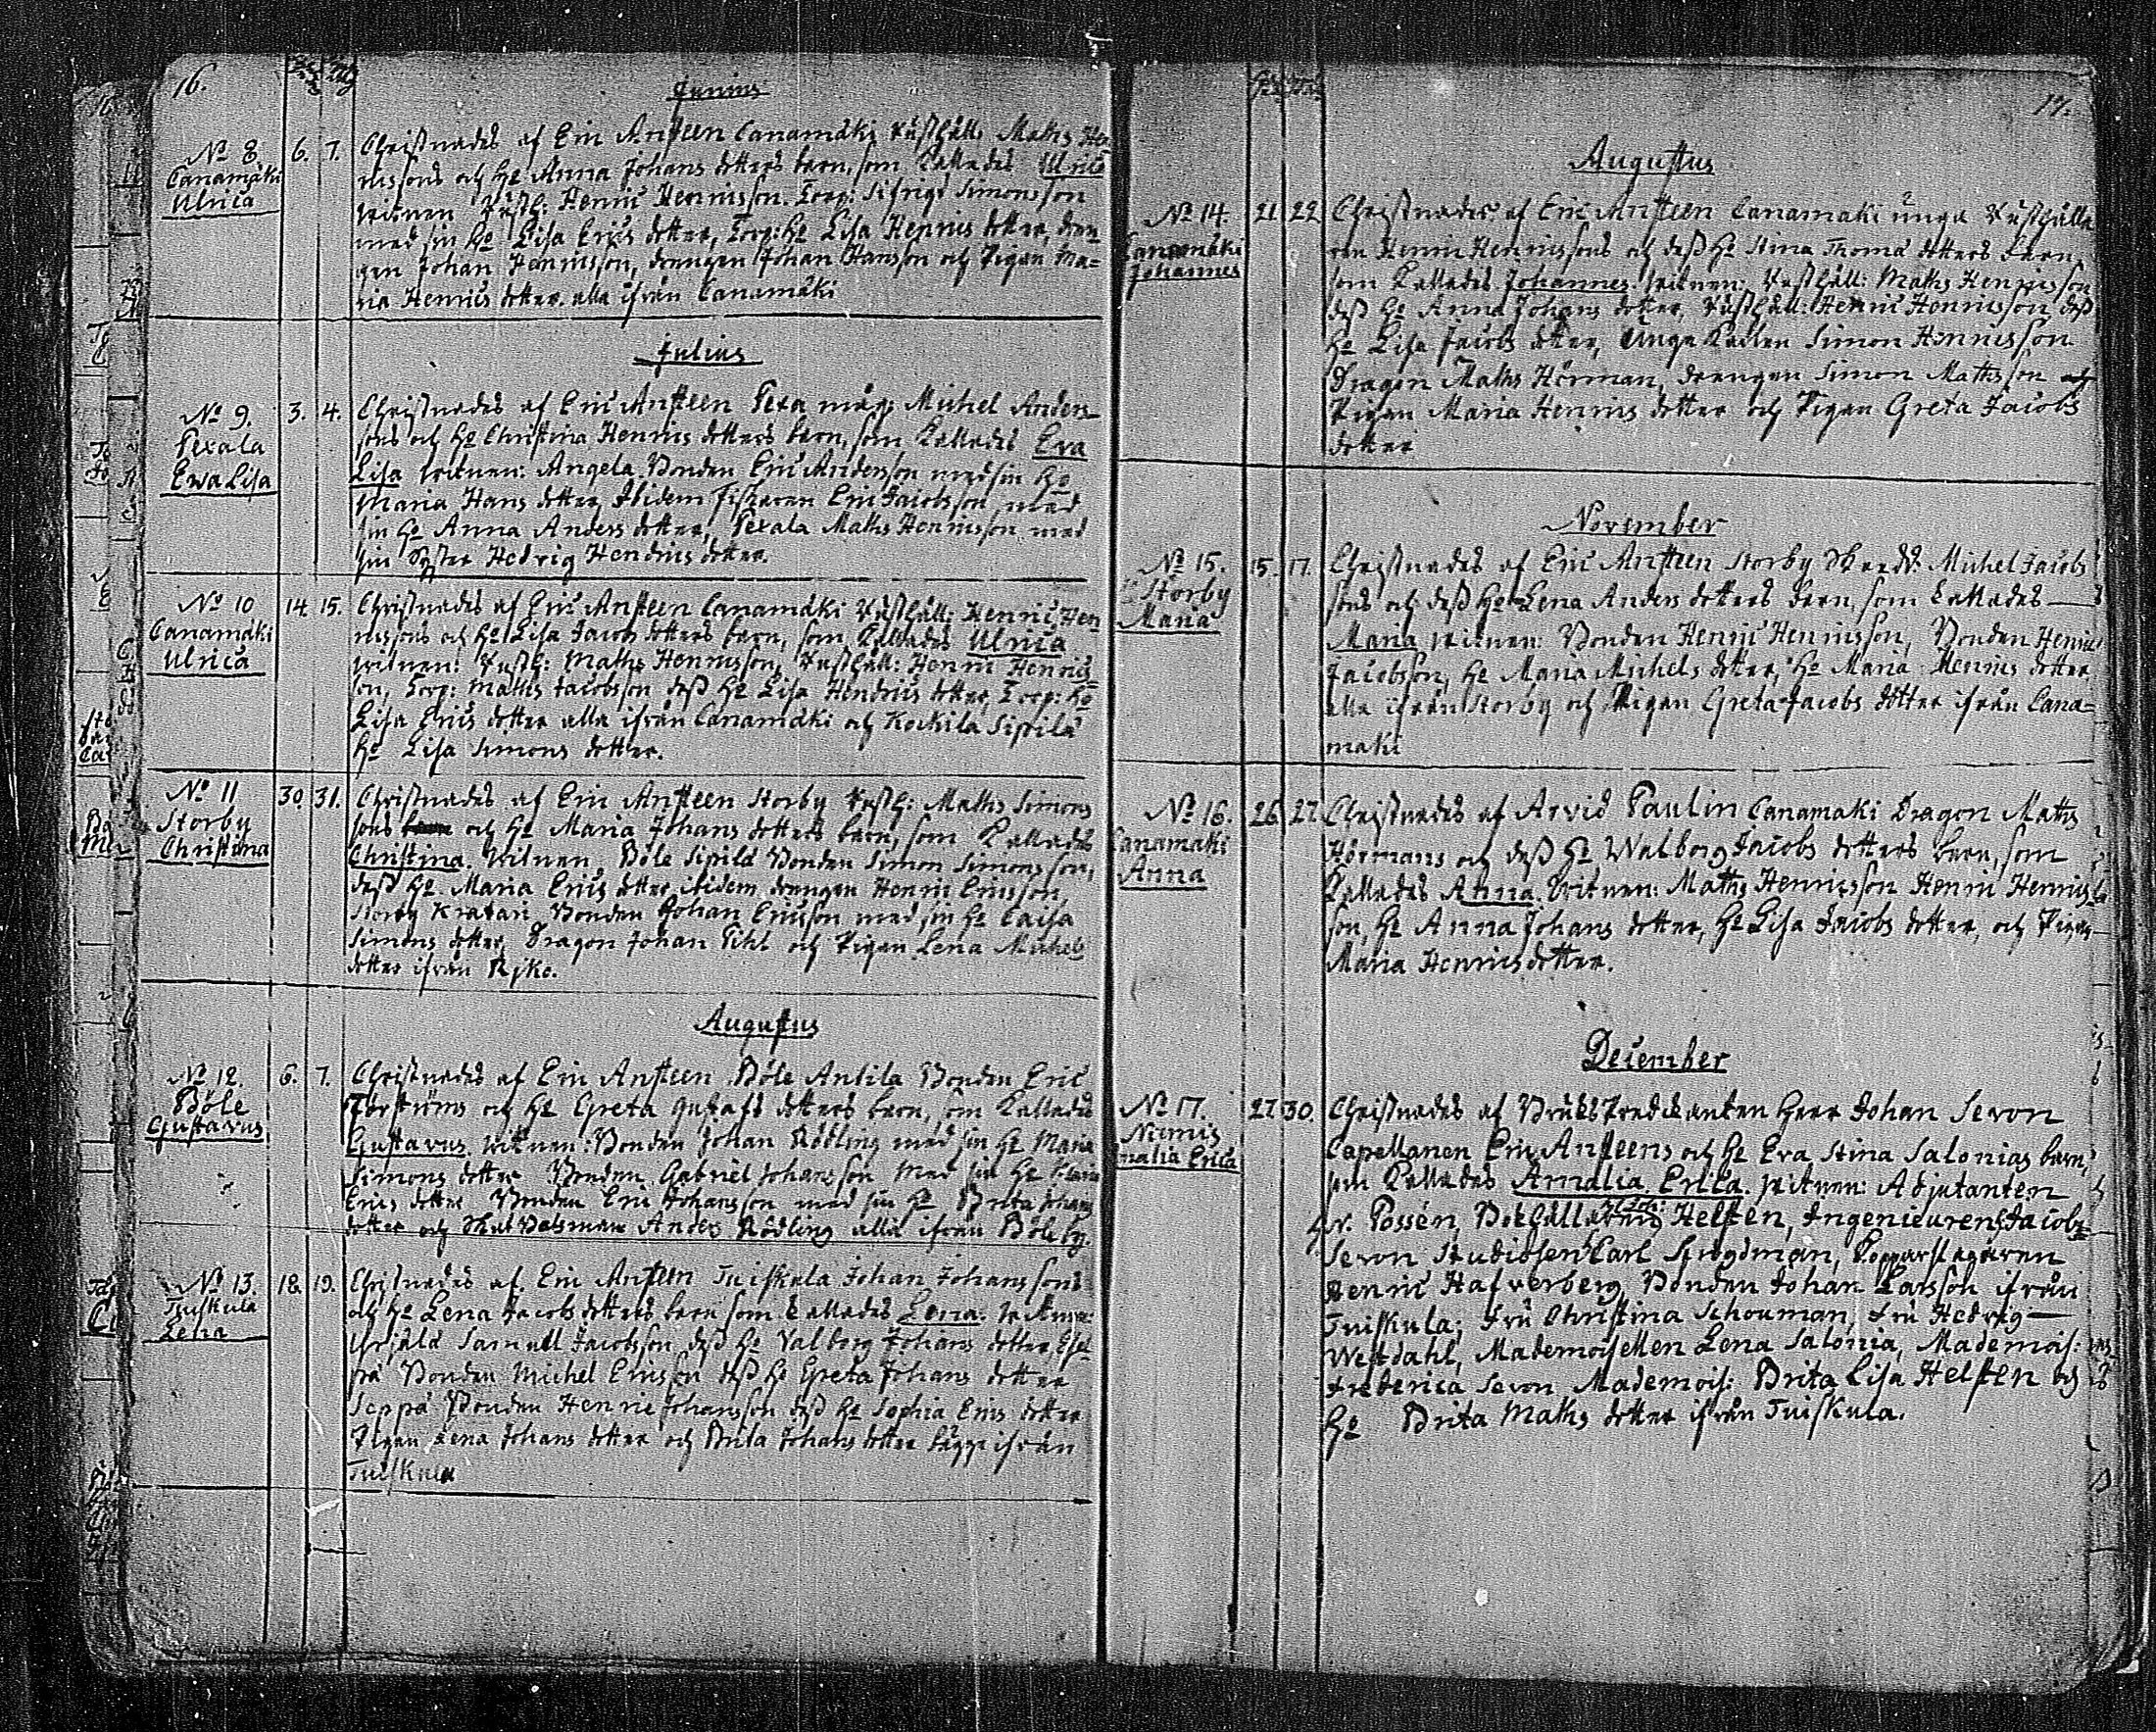 16.
Junius
No 8. 6. 7. Christnades af Eric Ansteen Canamäki Rusthåll: Maths Hen-
Canamäki nissons och Ho Anna Johans dotters barn, som kallades Ulrica
Ulrica witnen Rusth: Henric Henricsson. Torp: Sifrigd Simonsson
med sin Ho Lisa Erics dotter, Torp: Ho Lisa Henrics dotter, dren-
gen Johan Henricsson, drengen Johan Hansson och Pigan Ma=
ria Henrics dotter. alla ifrån Canamäki
Julius
No 9. 3. 4. Christnades af Eric Ansteen Pexa måg: Michel Anders-
Pexala sons och Ho Christina Henrics dotters barn, som kallades Eva
Ewa Lisa Lisa witnen: Angela Bonden Eric Andersson med sin Ho
Maria Hans dotter, Ibidem Fiskaren Eric Jacobsson med
sin Ho Anna Anders dotter, Pexala Maths Henricsson med
sin Syster Hedvig Hendrics dotter.
No 10 14. 15. Christnades af Eric Ansteen Canamäki Rusthåll: Henric Hen
Canamäki nissons och Ho Lisa Jacobs dotters barn, som kallades Ulrica
Ulrica witnen: Rusth: Maths Henricsson, Rusthåll: Henric Henrics
son, Torp: Maths Jacobsson dess Ho Lisa Hendrics dotter, Torp: Ho
Lisa Erics dotter alla ifrån Canamäki och Kockila Sipilä
Ho Lisa Simons dotter.
No 11 30. 31. Christnades af Eric Ansteen Storby Rusth: Maths Simons
Storby sons och Ho Maria Johans dotters barn, som kallades
Christina Christina. Witnen, Böle Sipilä Bonden Simon Simonsson,
dess Ho Maria Erics dotter ibidem drengen Henric Ericsson,
Storby Kratari Bonden Johan Ericsson med sin Ho Caisa
Simons dotter, Dragon Johan Pihl och Pigan Lena Michels
dotter ifrån Rjko.
Augustus
No 12. 6. 7. Christnades af Eric Ansteen Böle Antila Bonden Eric
Böle och Ho Greta Gustafs dotters barn, som kallades
Gustavus Gustavus witnen: Bonden Johan Rödling med sin Ho Maria
Simons dotter Bonden Gabriel Johansson med sin Ho
Erics dotter Bonden Eric Johansson med sin Ho Brita Johans
dotter och Anders Rödling alla ifrån Böle by.
No 13. 18. 19. Christnades af Eric Ansteen Tuiskula Johan Johanssons
Tuiskula och Ho Lena Jacobs dotters barn som kallades Lena.
Lena Samuel Jacobsson, dess Ho Valborg Johans dotter,
på Bonden Michel Ericsson dess Ho Greta Johans dotter
Seppä Bonden Henric Johansson dess Ho Sophia Erics dotter
Pigan Lena Johans dotter och Brita Johans dotter ifrån
Tuiskula
17.
Augustus
No 14. 21 22 Christnades af Eric Ansteen Canamaki unga Rusthålla
Canamäki ren Henric Henricssons och dess Ho Stina Thoma dotters barn,
Johannes som kallades Johannes witnen: Rusthåll: Maths Henricsson
dess Ho Anna Johans dotter, Rusthåll: Henric Henricsson dess
Ho Lisa Jacobs dotter, Unga Karlen Simon Henricsson
Dragon Maths Hörman, drengen Simon Mathsson och
Pigan Maria Henrics dotter och Pigan Greta Jacobs
dotter
November
No 15. 15. 17. Christnades af Eric Ansteen Storby Michel Jacobs
Storby sons och dess Ho Lena Anders dotters barn, som kallades
Maria Maria witnen: Bonden Henric Henricsson, Bonden Henric
Jacobsson, Ho Maria Michels dotter, Ho Maria Henrics dotter
alla ifrån Storby och Pigan Greta Jacobs dotter ifrån Cana=
maki
No 16. 26 27 Christnades af Arvid Paulin Canamaki Dragon Maths
Canamaki Hörmans och dess Ho Walborg Jacobs dotters barn, som
Anna kallades Anna. Witnen: Maths Henricsson Henric Henrics
son, Ho Anna Johans dotter, Ho Lisa Jacobs dotter, och Pigan
Maria Henrics dotter.
December
No 17. 27. 30. Christnades af Bruks Predikanten Herr Johan Seron
Nurmis Capellanen Eric Ansteens och Ho Eva Stina Salonias barn,
malia Erica som kallades Amalia Erica. witnen: Adjutanten
Possén, Bokhållaren Helsten, Ingenieuren Jacob
Seron Studiosen Carl, Kopparslagaren
Henric Hafverberg, Bonden Johan Larsson ifrån
Tuiskula; Fru Christina Schouman, Fru Hedvig
Westdahl, Mademoisellen Lena Salonia, Mademois:
Frederica Seron, Mademois: Brita Lisa Helsten och
Ho Brita Maths dotter ifrån Tuiskula.